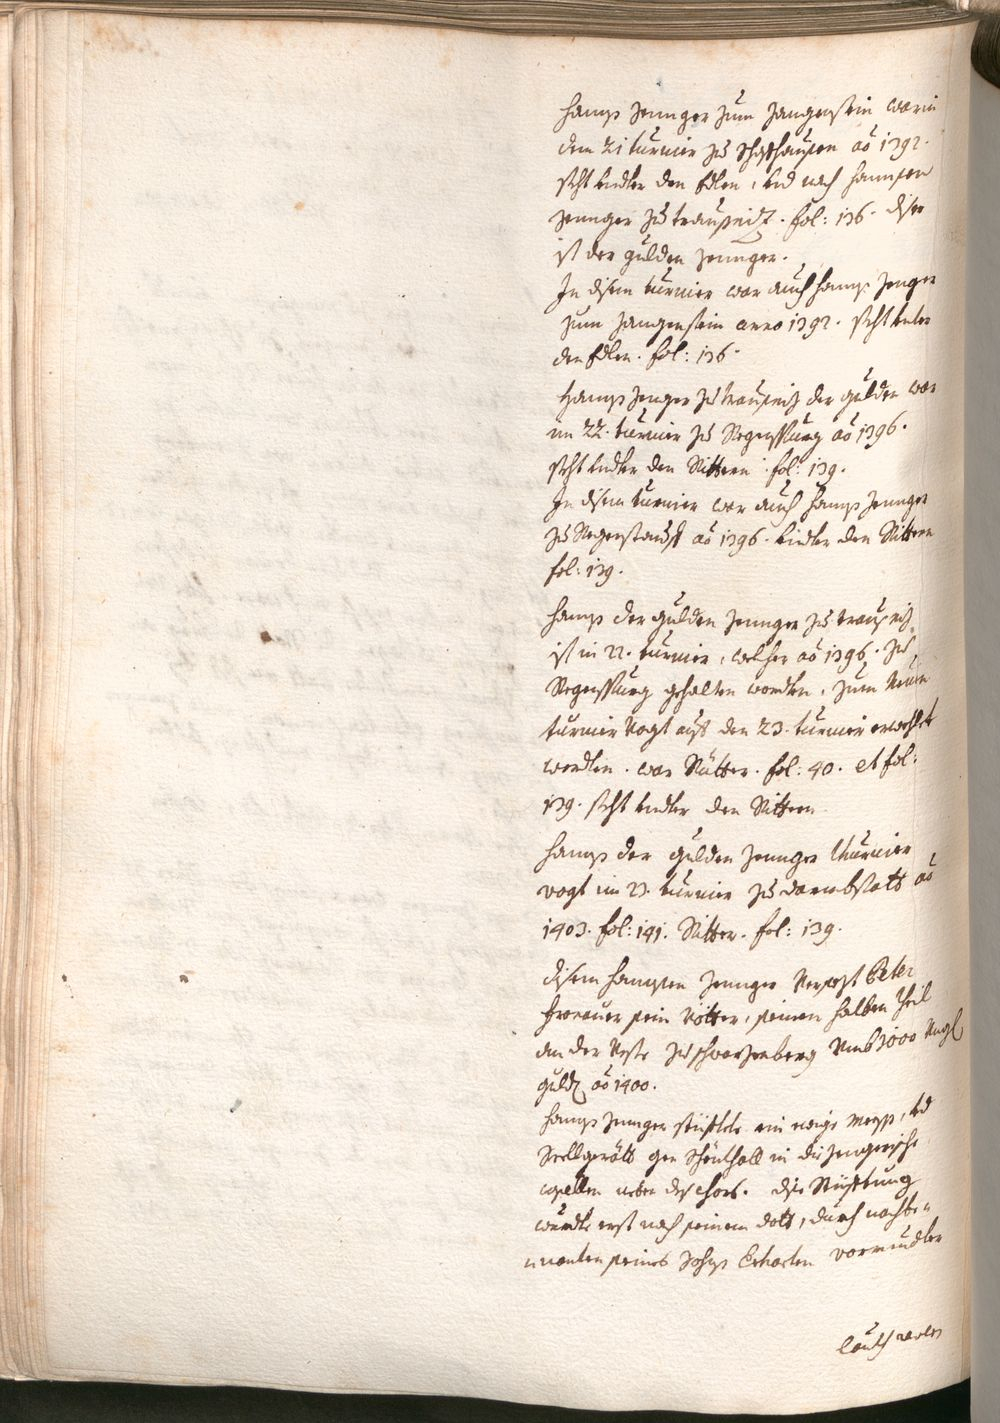 Hanns Zennger zum Zangenstein war in
dem 21 turnier zu Schafhausen aō 1392.
steht undter den Edlen, und nach Hannsen
Zennger zu trausnicht. fol: 136. diser
ist der gulden Zennger.
In disem turnier war auch Hanns Zenger
zum Zangenstein anno 1392. steht unter
den Edlen. fol: 136.
Hanns Zenger zu trausnich der gulden war
im 22. turnier zu Regenspurg aō 1396.
steht undter den Rittern. fol: 139.
In disem turnier war auch Hanns Zennger
zu Regenstauff aō 1396. undter den Rittern
fol: 139.
Hanns der gulden Zennger zu trausnich
ist in 22. turnier, welcher aō 1396. zu
Regenspurg gehalten wordten, zum Neuen
turnier Vogt auff den 23. turnier erwehlt
wordten. war Ritter. fol: 40. et fol:
139. steht undter den Rittern
Hanns der gulden Zennger thurnier
vogt im 23. turnier zu darmbstatt aō
1403. fol: 141. Ritter. fol: 139.
disem Hannsen Zennger Peter
fronauer sein Vötter, seinen halben theil
an der Veste zu schwarzenberg umb 3000 Ung
guld aō 1400.
Hanns Zennger stifftete ein ewige Mess, und
Seellgerätt gen Schönthall in die Zengerische
capellen neben des chors. dise Stifftung
wurdte erst nach seinem dott, durch nachbe¬
nnanten seines Sohns Erharten vormundter